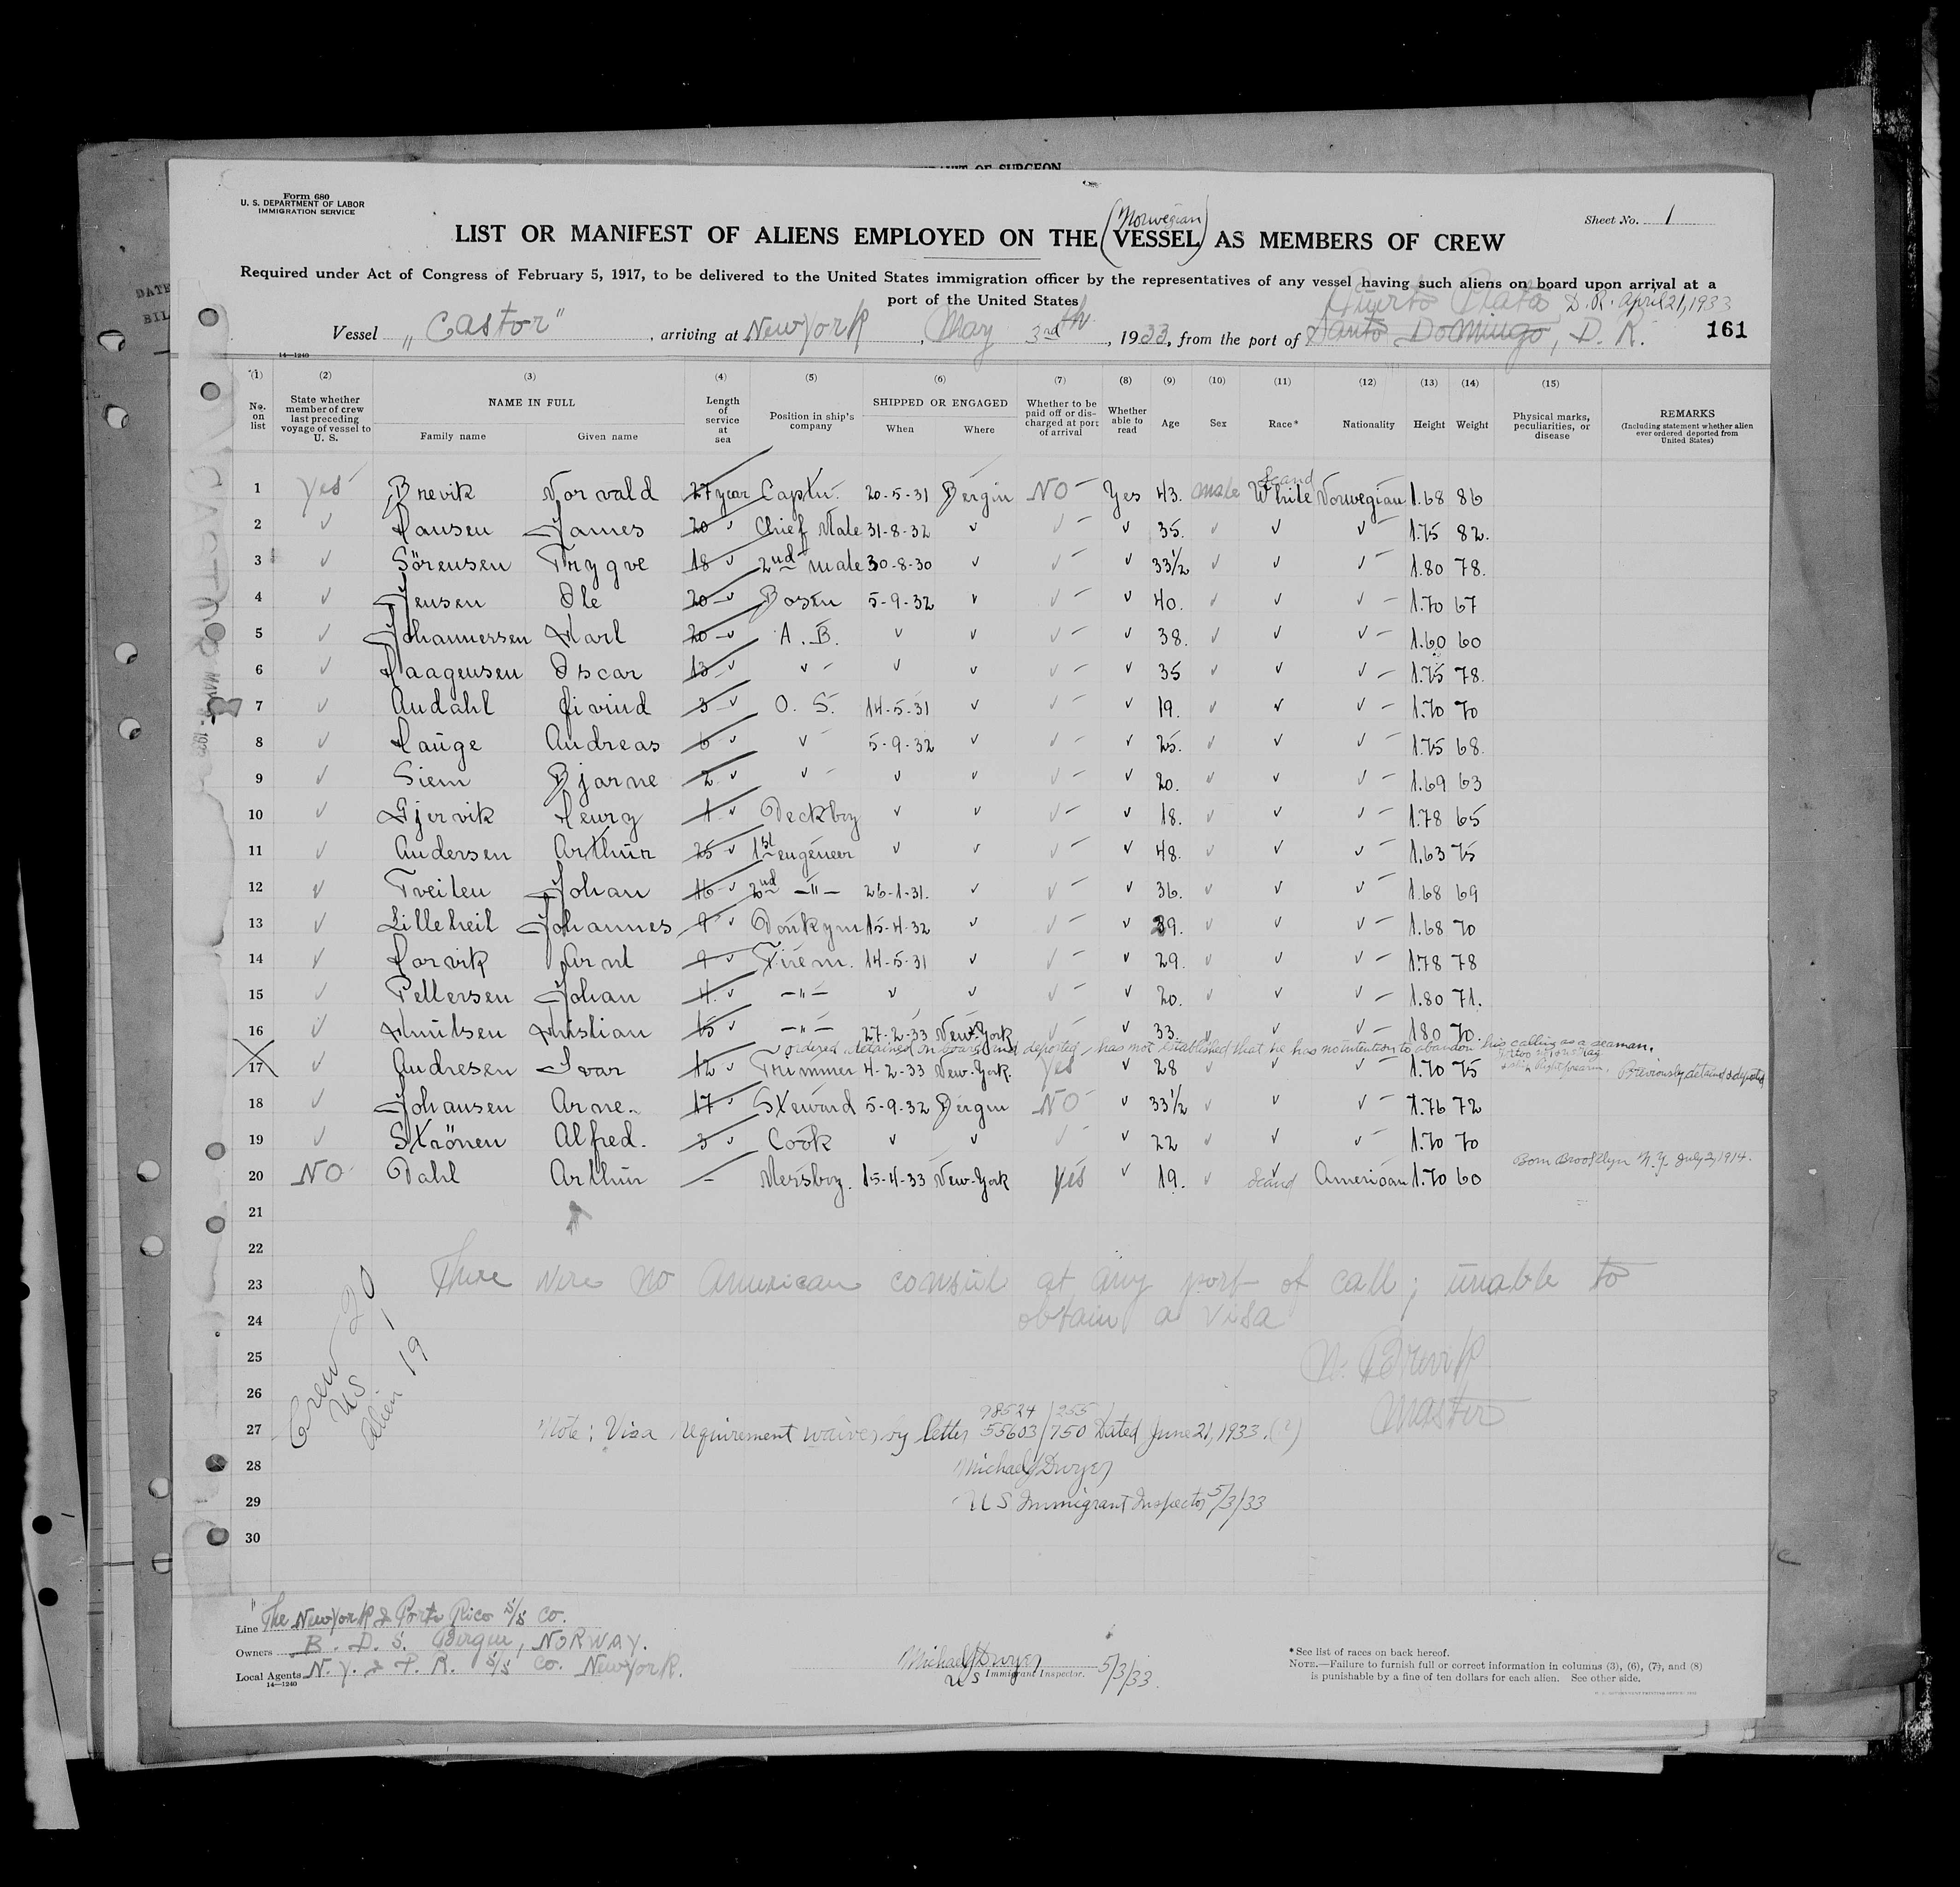 Form 680
U. S. DEPARTMENT OF LABOR
IMMIGRATION SERVICE
Sheet No. 1
(Norwegian)
LIST OR MANIFEST OF ALIENS EMPLOYED ON THE VESSEL AS MEMBERS OF CREW
Required under Act of Congress of February 5, 1917, to be delivered to the United States immigration officer by the representatives of any vessel having such aliens on board upon arrival at a
port of the United States
Puerto Plata, D. R. April 21, 1933
Vessel „Castor", arriving at New York, May 3rd, 1933, from the port of Santo Domingo, D. R.
161
14—1240
(1) (2) (3) (4) (5) (6) (7) (8) (9) (10) (11) (12) (13) (14) (15)
No. on list
State whether member of crew last preceding voyage of vessel to U. S.
NAME IN FULL
Family name Given name
Length of service at sea
Position in ship's company
SHIPPED OR ENGAGED
When Where
Whether to be paid off or discharged at port of arrival
Whether able to read
Age
Sex
Race*
Nationality
Height
Weight
Physical marks, peculiarities, or disease
REMARKS
(Including statement whether alien ever ordered deported from United States)
Scand
1 Yes Brevik Norvald 27 year Captn. 20-5-31 Bergin NO Yes 43. male White Norwegian 1.68 86
2 ✓ Hansen James 20 ✓ Chief Mate 31-8-32 ✓ ✓ - ✓ 35. ✓ ✓ ✓ 1.75 82.
3 ✓ Sörensen Trygve 18 ✓ 2nd mate 30-8-30 ✓ ✓ - ✓ 33½ ✓ ✓ ✓ 1.80 78.
4 ✓ Jensen Ole 20 ✓ Bosen 5-9-32 ✓ ✓ - ✓ 40. ✓ ✓ ✓ 1.70 67
5 ✓ Johannessen Karl 20 ✓ A. B. ✓ ✓ ✓ - ✓ 38. ✓ ✓ ✓ 1.60 60
6 ✓ Haagensen Oscar 13 ✓ ✓ ✓ ✓ ✓ - ✓ 35 ✓ ✓ ✓ 1.75 78.
7 ✓ Andahl Eivind 3 ✓ O. S. 14-5-31 ✓ ✓ - ✓ 19. ✓ ✓ ✓ 1.70 70
8 ✓ Hauge Andreas 6 ✓ ✓ 5-9-32 ✓ ✓ - ✓ 25. ✓ ✓ ✓ 1.75 68.
9 ✓ Siem Bjarne 2 ✓ ✓ ✓ ✓ ✓ - ✓ 20. ✓ ✓ ✓ 1.69 63
10 ✓ Gjervik Henry 1 ✓ Deckboy ✓ ✓ ✓ - ✓ 18. ✓ ✓ ✓ 1.78 65
11 ✓ Andersen Arthur 25 ✓ 1st engeneer ✓ ✓ ✓ - ✓ 48. ✓ ✓ ✓ 1.63 75
12 ✓ Tveiten Johan 16 ✓ 2nd -"- 26-1-31. ✓ ✓ - ✓ 36. ✓ ✓ ✓ 1.68 69
13 ✓ Lilleheil Johannes 9 ✓ Donkym 15-4-32 ✓ ✓ - ✓ 39. ✓ ✓ ✓ 1.68 70
14 ✓ Horvik Arnt 9 ✓ Firem. 14-5-31 ✓ ✓ - ✓ 29. ✓ ✓ ✓ 1.78 78
15 ✓ Pettersen Johan 4. ✓ -"- ✓ ✓ ✓ - ✓ 20. ✓ ✓ ✓ 1.80 71.
16 ✓ Knutsen Kristian 15 ✓ -"- 27-2-33 New-York ✓ - ✓ 33. ✓ ✓ ✓ 1.80 70.
ordered detained on board and deported, has not established that he has no intention to abandon his calling as a seaman.
17 ✓ Andresen Ivar 12 ✓ Trimmer 4-2-33 New-York. Yes ✓ 28 ✓ ✓ ✓ 1.70 75 Previously detained & deported
18 ✓ Johansen Arne. 17 ✓ Steward 5-9-32 Bergin NO ✓ 33½ ✓ ✓ ✓ 1.76 72
19 ✓ Strönen Alfred. 3 ✓ Cook ✓ ✓ ✓ ✓ 22 ✓ ✓ ✓ 1.70 70
Born Brooklyn N. Y. July 2, 1914.
20 NO Dahl Arthur - Mersboy. 15-4-33 New-York Yes ✓ 19. ✓ Scand American 1.70 60
21
22
23 There were no American consul at any port of call; unable to
24 obtain a visa
25 N. Brevik
26 Master
Crew 20
US 1
Alien 19
98524/255
27 Note: Visa requirement waived by letter 55603/750 Dated June 21, 1933. (?)
28 Michael J Dwyer
29 U S Immigrant Inspector 5/3/33
30
Line The New York & Porto Rico S/S Co.
Owners B. D. S. Bergin, NORWAY.
Local Agents N. Y. & P. R. S/S Co. New York.
14—1240
Michael J Dwyer 5/3/33
U S Immigrant Inspector.
*See list of races on back hereof.
NOTE.—Failure to furnish full or correct information in columns (3), (6), (7), and (8)
is punishable by a fine of ten dollars for each alien. See other side.